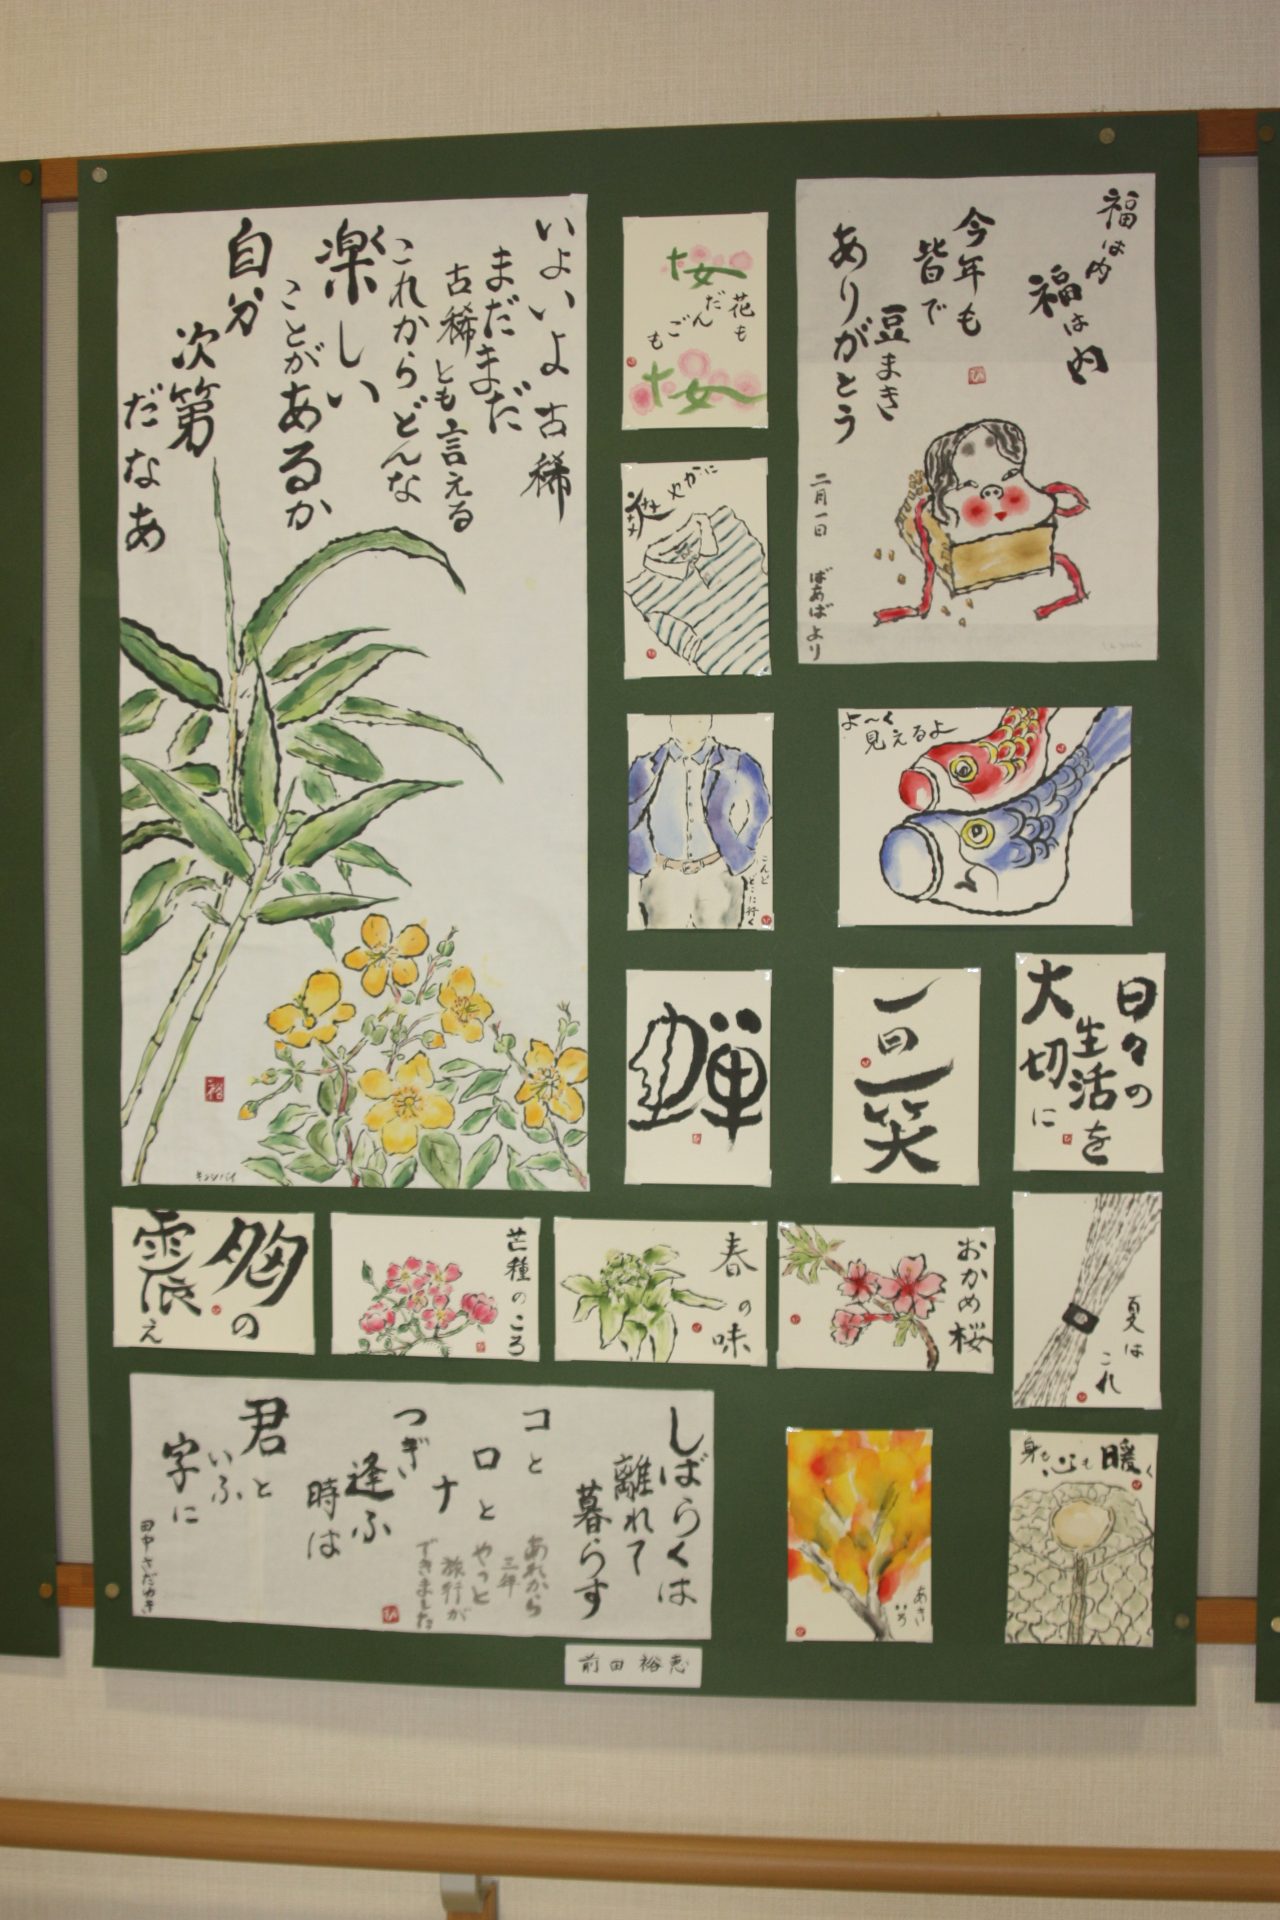 いよいよ古稀
まだまだ
古稀とも言える
これからどんな
楽しい
ことがあるか
自分
次第
だなあ
キンシバイ
裕
桜
花も
だんごも
桜
福は内
福は内
今年も
皆で
豆まき
ありがとう
二月一日 ばあばより
爽やかに
こんど
どこに行く
よ〜く
見えるよ
蝉
一日
一笑
日々の
生活を
大切に
胸の
震え
芒種のころ
春の味
おかめ桜
夏は
これ
しばらくは
離れて
暮らす
コと
ロと
ナ
つぎ
逢ふ
時は
君と
いふ
字に
田中さだゆき
あれから
三年
やっと
旅行が
できました
あきいろ
身も心も暖く
前田裕恵